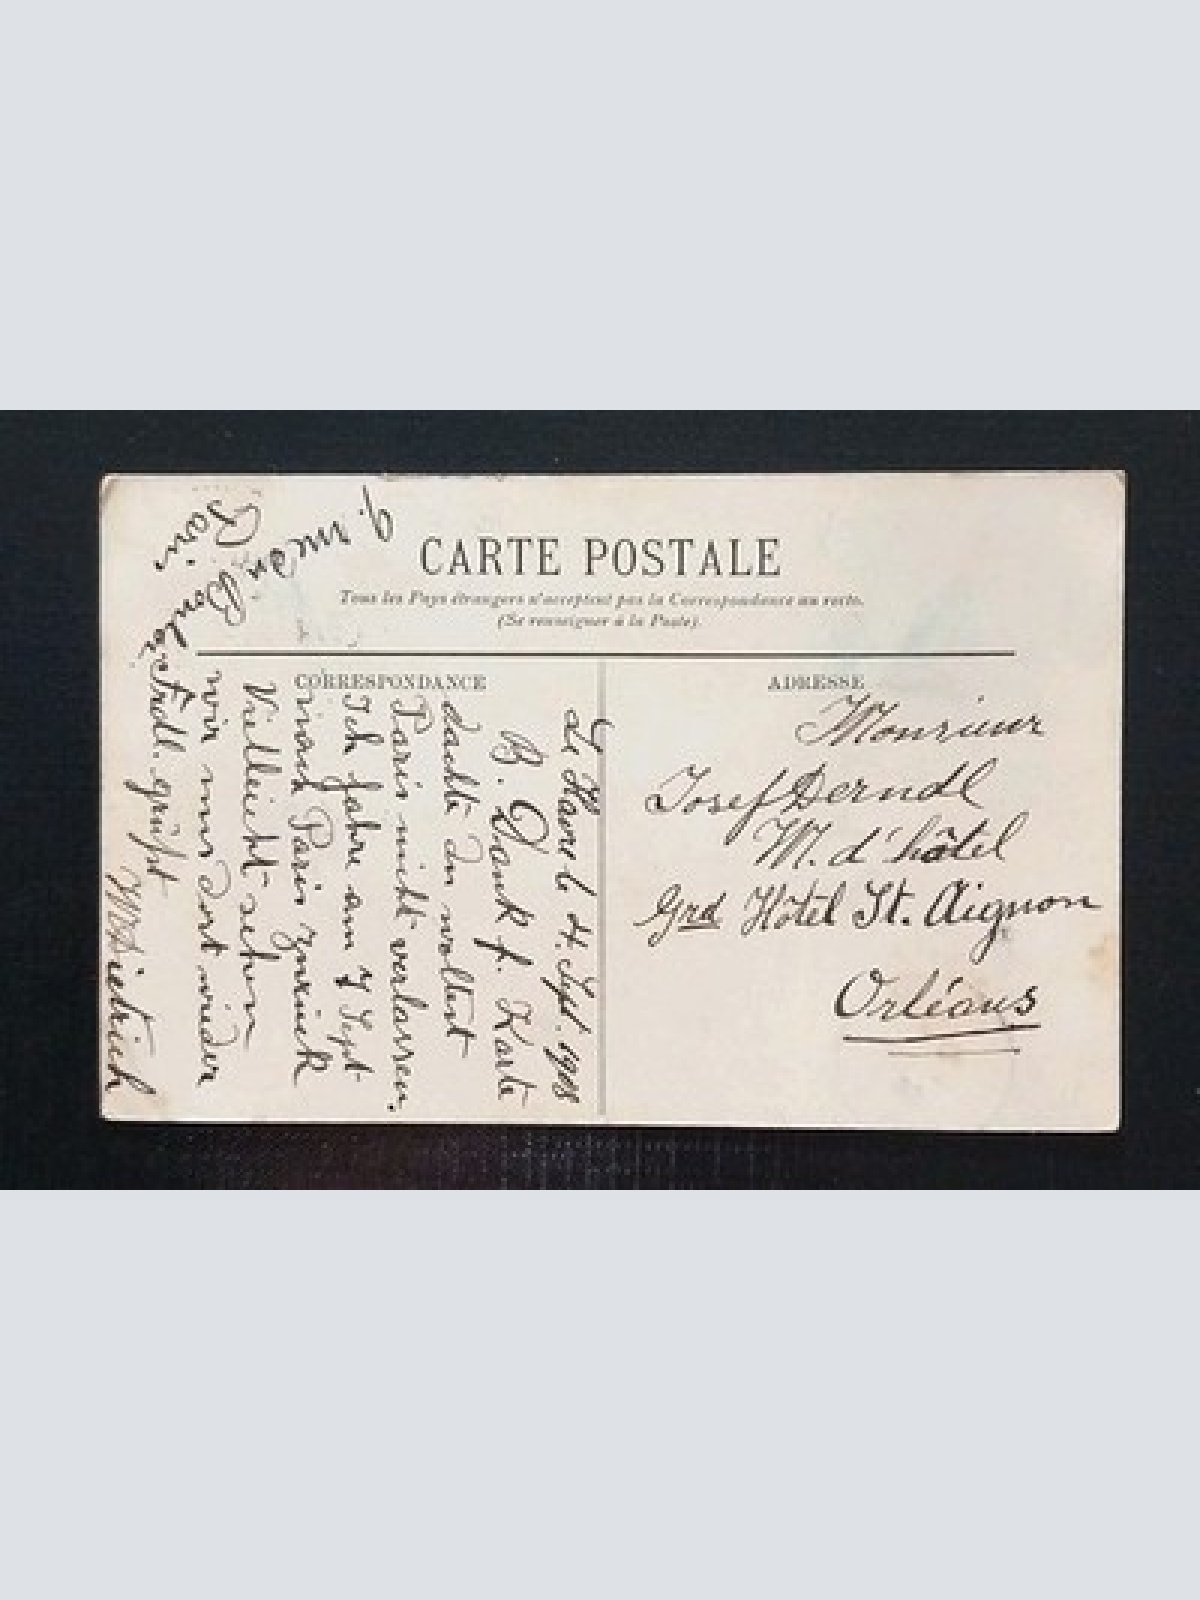 CARTE POSTALE
Tous les Pays étrangers n'acceptent pas la Correspondance au recto.
(Se renseigner à la Poste).
CORRESPONDANCE
Le Havre le 4. Sept. 1908
B. Dank f. Karte
dachte du wolltest
Paris nicht verlassen.
Ich fahre am 7 Sept
nach Paris zurück
Vielleicht sehen
wir uns dort wieder
Frdl. grüßt
Dietrich
Paris
ADRESSE
Monsieur
Josef Derndl
M. d'hôtel
Grd Hôtel St. Aignon
Orléans